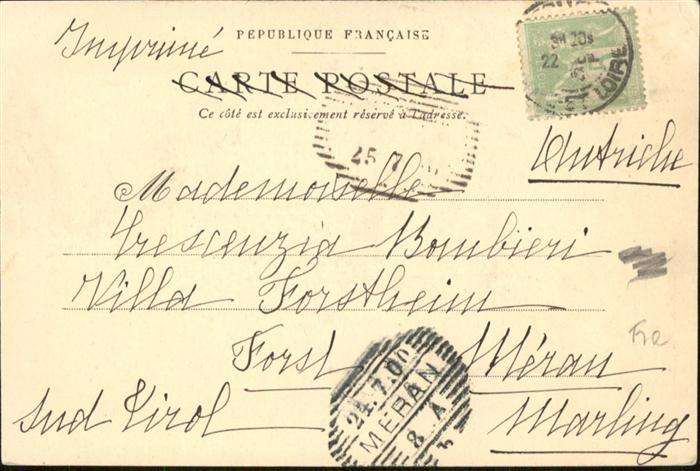 Imprimé
REPUBLIQUE FRANÇAISE
CARTE POSTALE
Ce côté est exclusivement réservé à l'adresse.
22
LOIRE
25 7
Autriche
Mademoiselle
Crescenzia Bombieri
Villa Forstheim
Forst Méran
Sud Tirol Marling
24.7.00
MERAN
8 A